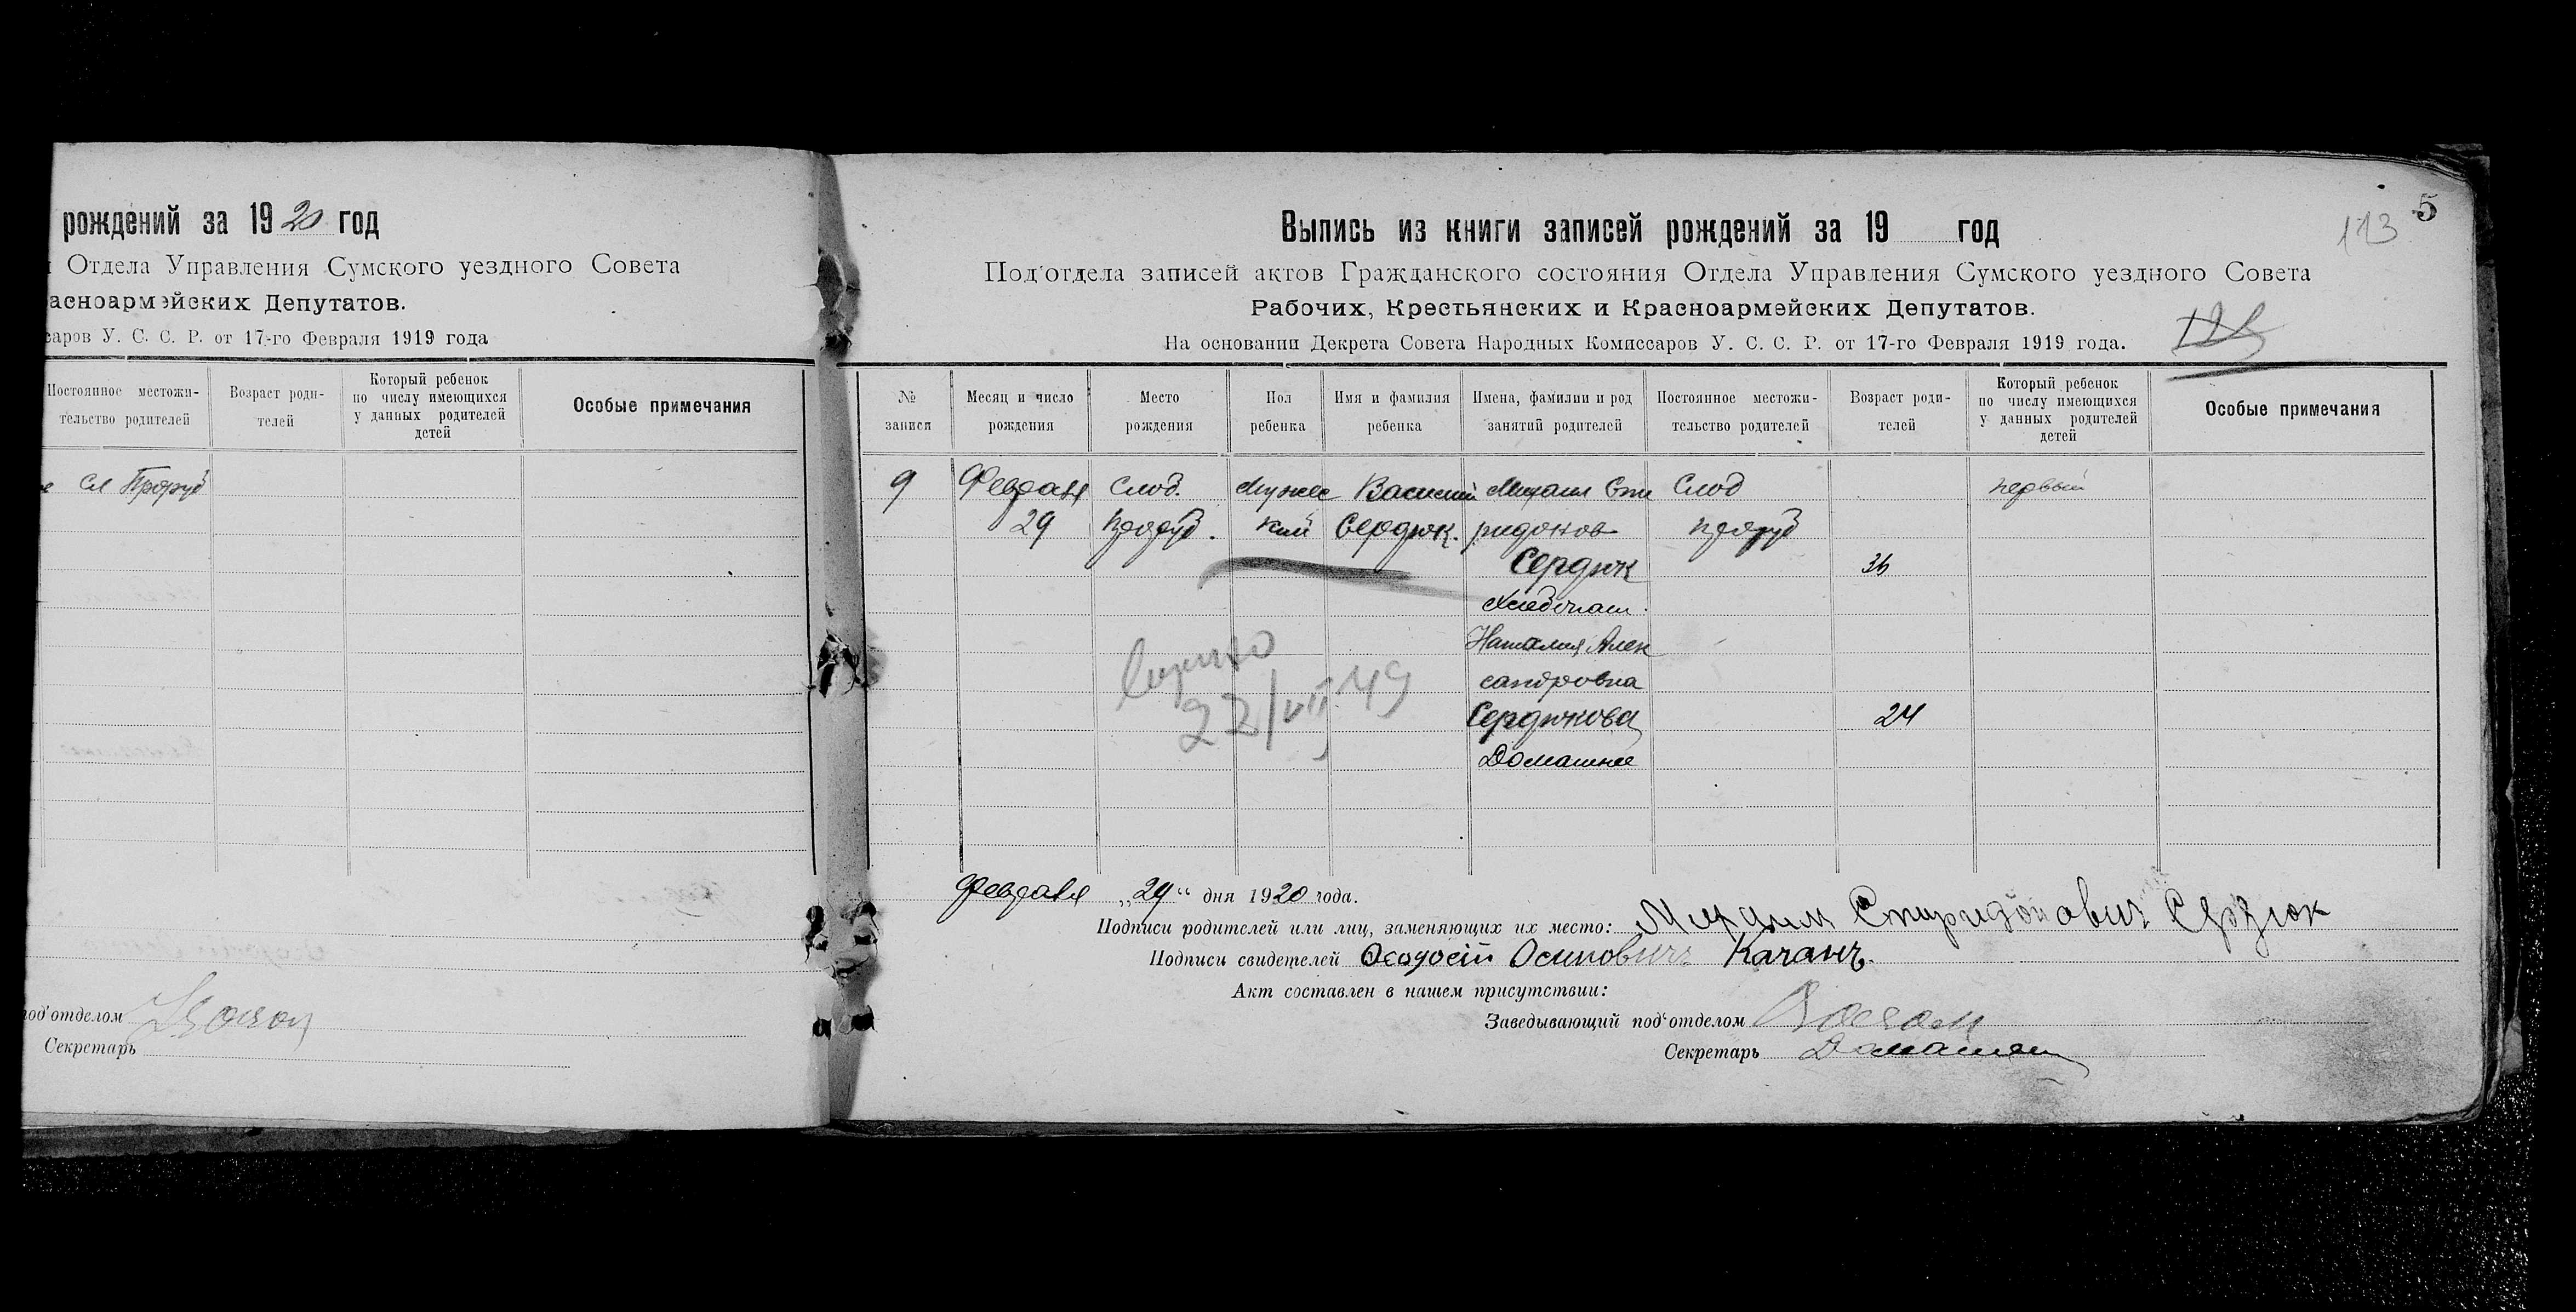 рождений за 1920 год
Отдела Управления Сумского уездного Совета
асноармейских Депутатов.
саров У. С. С. Р. от 17-го Февраля 1919 года
Постоянное местожи-
тельство родителей
Возраст роди-
телей
Который ребенок
по числу имеющихся
у данных родителей
детей
Особые примечания
Сл Проруб
под'отделом
Секретарь
113 5
Выпись из книги записей рождений за 19 год
Под'отдела записей актов Гражданского состояния Отдела Управления Сумского уездного Совета
Рабочих, Крестьянских и Красноармейских Депутатов.
На основании Декрета Совета Народных Комиссаров У. С. С. Р. от 17-го Февраля 1919 года.
№
записи
Месяц и число
рождения
Место
рождения
Пол
ребенка
Имя и фамилия
ребенка
Имена, фамилии и род
занятий родителей
Постоянное местожи-
тельство родителей
Возраст роди-
телей
Который ребенок
по числу имеющихся
у данных родителей
детей
Особые примечания
9 Февраля Слоб. Мужес Василий Михаил Спи Слоб первый
29 Проруб. кий Сердюк. ридонов Проруб
Сердюк 36
Хлебопаш.
Наталия Алек
сандровна
Сердюкова 24
Домашнее
22/VII 49
Февраля „29“ дня 1920 года.
Подписи родителей или лиц, заменяющих их место: Михаил Спиридонович Сердюк
Подписи свидетелей Феодосій Осиповичъ Качанъ.
Акт составлен в нашем присутствии:
Заведывающий под'отделом
Секретарь